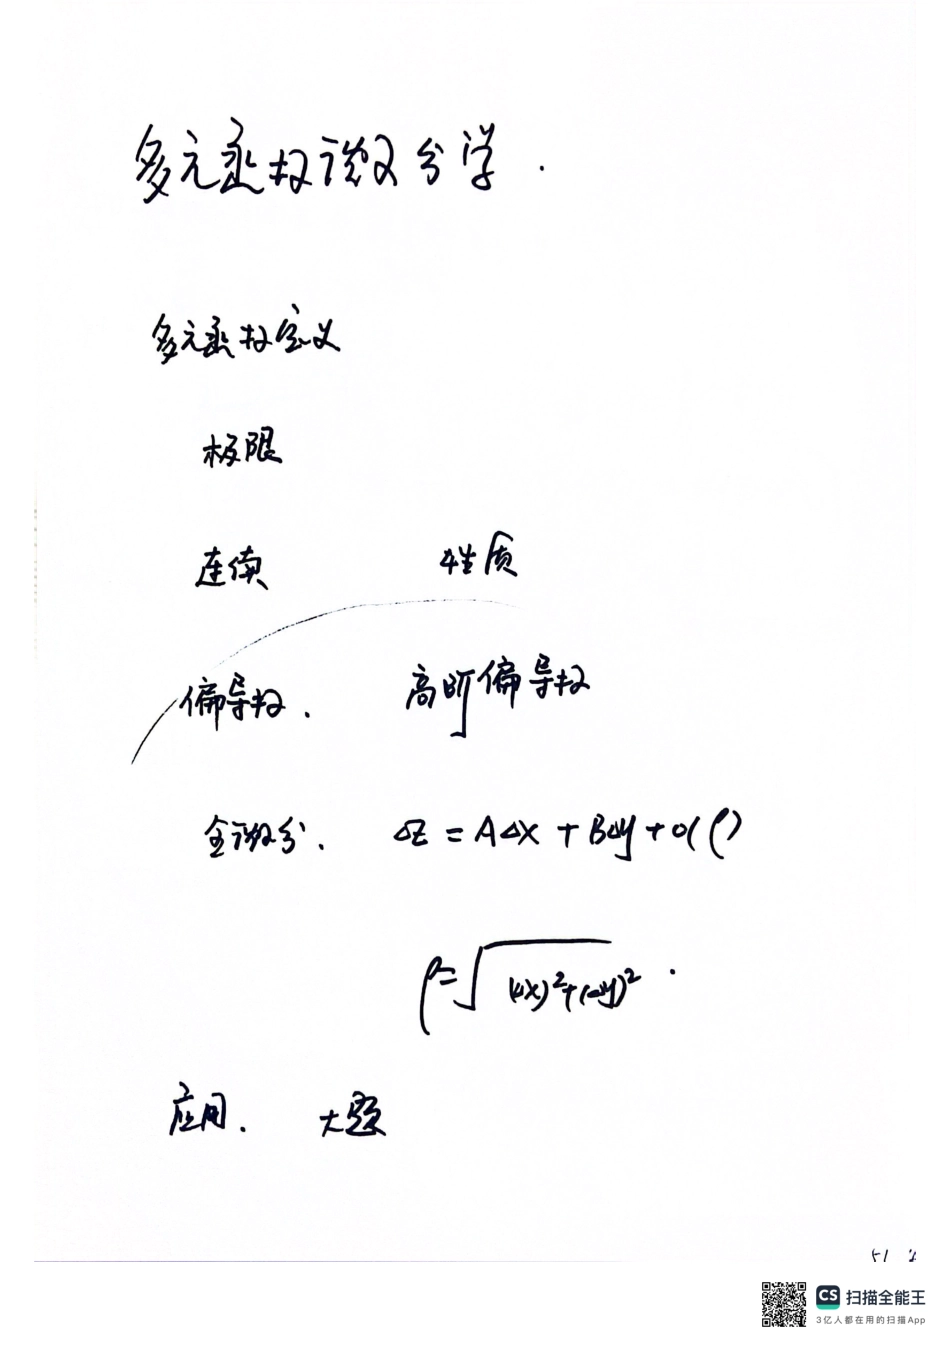 多元函数微分学.
多元函数定义
极限
连续 性质
偏导数. 高阶偏导数
全微分. Δz = AΔx + BΔy + o(ρ)
ρ=√(Δx)²+(Δy)².
应用. 大题
CS 扫描全能王
3亿人都在用的扫描App